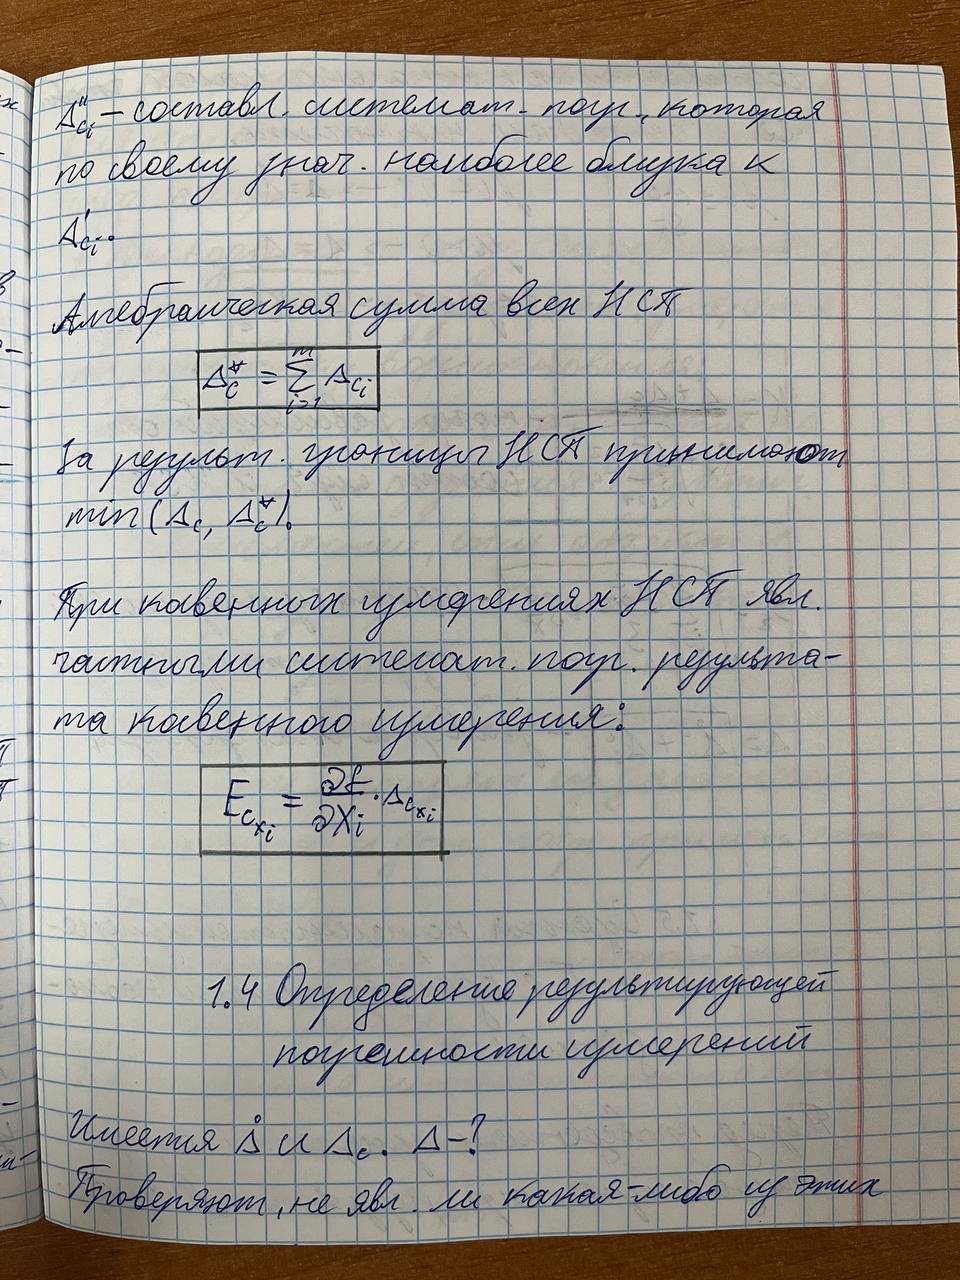 Δ″cᵢ – составл. системат. погр., которая
по своему знач. наиболее близка к
Δ′cᵢ.
Алгебраическая сумма всех НСП
Δc* = Σ(i=1..m) Δcᵢ
За результ. границы НСП принимают
min(Δc, Δc*).
При кавенных измерениях НСП явл.
частными системат. погр. результа-
та кавенного измерения:
E_c_xᵢ = ∂f/∂Xᵢ · Δ_c_xᵢ
1.4 Определение результирующей
погрешности измерений
Имеется Δ̊ и Δc. Δ–?
Проверяют, не явл. ли какая-либо из этих